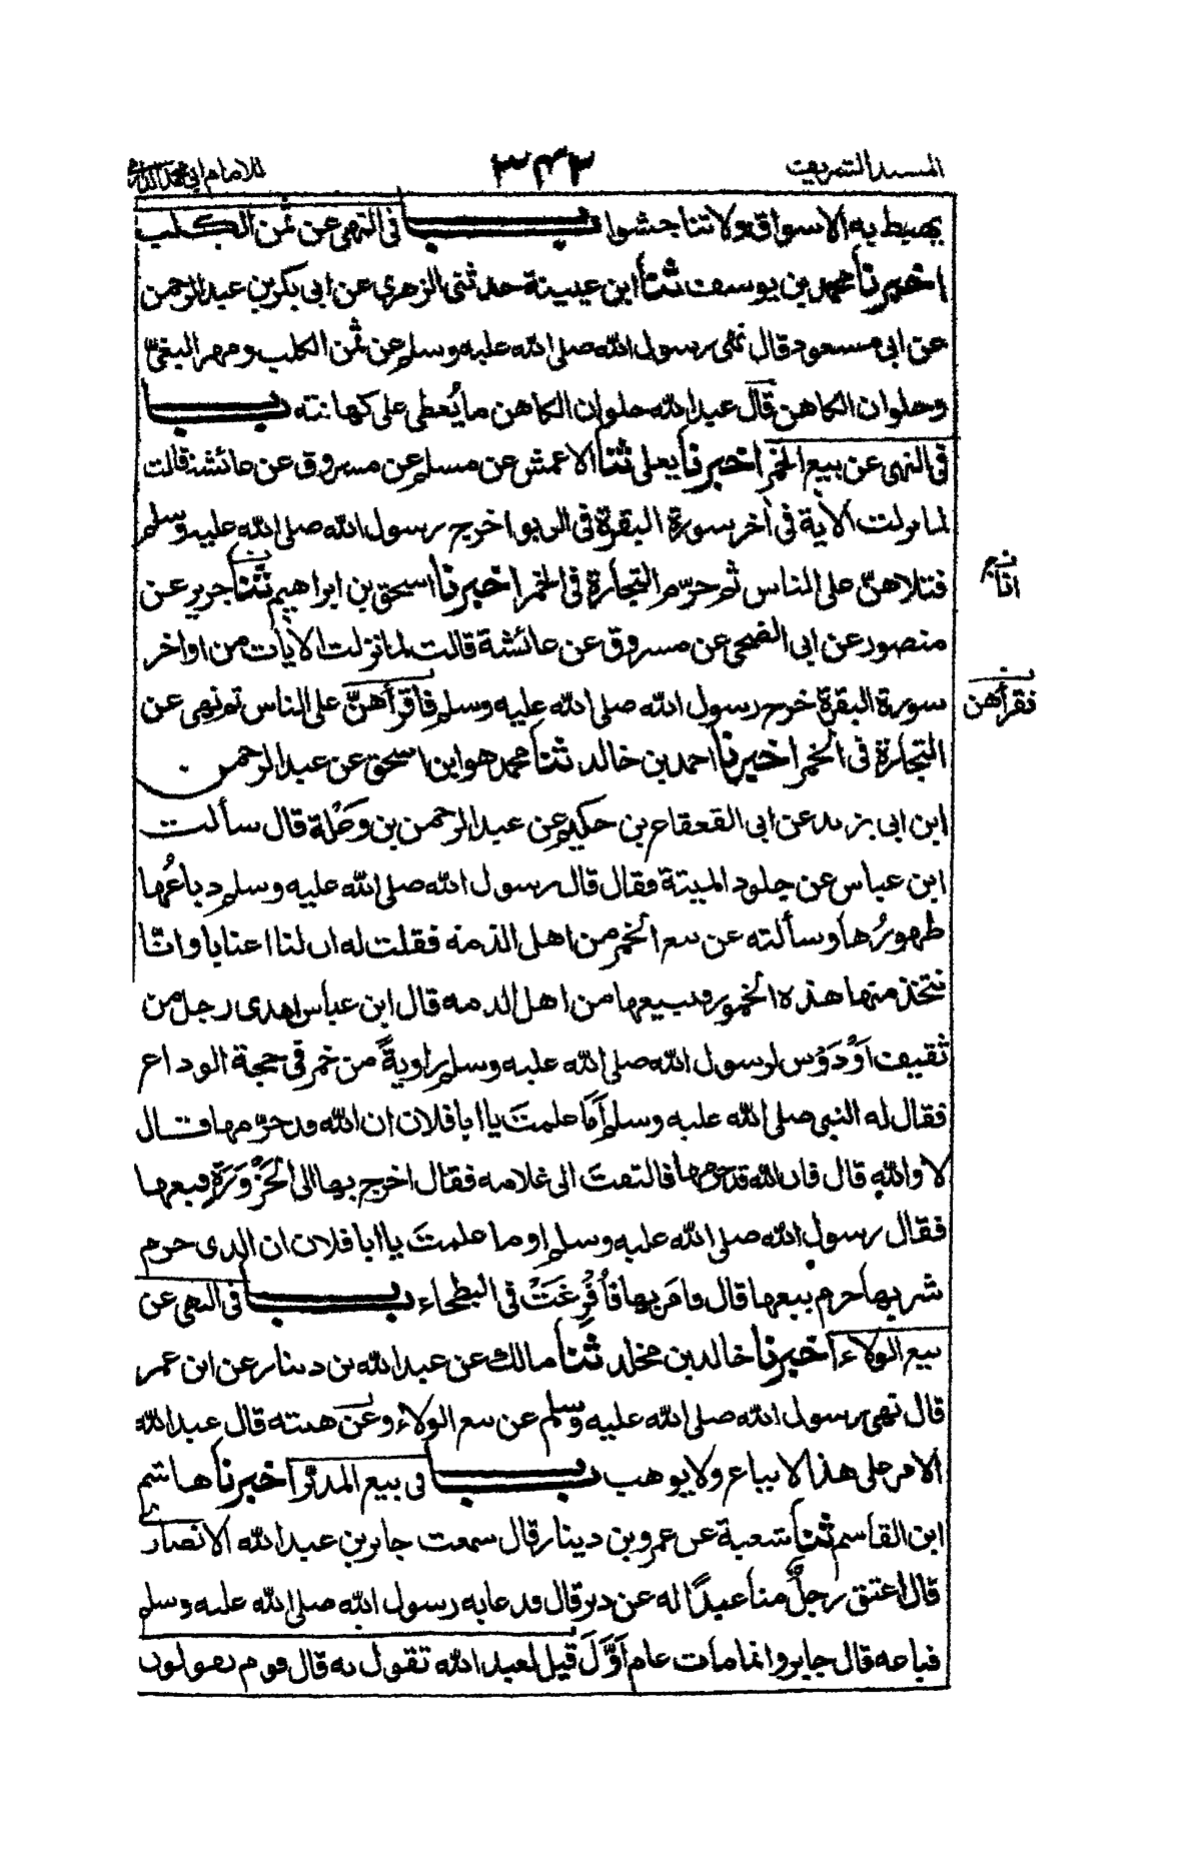 المسند الشريف ٣٤٣ للامام ابي محمد الدارمي
يهبط به الاسواق ولا تناجشوا باب في النهى عن ثمن الكلب
اخبرنا محمد بن يوسف ثنا ابن عيينة حدثنى الزهرى عن ابى بكر بن عبد الرحمن
عن ابى مسعود قال نهى رسول الله صلى الله عليه وسلم عن ثمن الكلب ومهر البغىّ
وحلوان الكاهن قال عبد الله حلوان الكاهن ما يُعطى على كهانته باب
فى النهى عن بيع الخمر اخبرنا يعلى ثنا الاعمش عن مسلم عن مسروق عن عائشة قالت
لما نزلت الآية فى أخر سورة البقرة فى الربو اخرج رسول الله صلى الله عليه وسلم
فتلاهنّ على الناس ثم حرّم التجارة فى الخمر اخبرنا اسحق بن ابراهيم ثنا جرير عن
انا
منصور عن ابى الضحى عن مسروق عن عائشة قالت لما نزلت الأيات من اواخر
سورة البقرة خرج رسول الله صلى الله عليه وسلم فاقرأهنّ على الناس ثم نهى عن
فقرأهن
التجارة فى الخمر اخبرنا احمد بن خالد ثنا محمد هو ابن اسحق عن عبد الرحمن
ابن ابى يزيد عن ابى القعقاع بن حكيم عن عبد الرحمن بن وَعْلة قال سألت
ابن عباس عن جلود الميتة فقال قال رسول الله صلى الله عليه وسلم دباغُها
طهورُها وسألته عن بيع الخمر من اهل الذمة فقلت له ان لنا اعنابا وانّا
نتخذ منها هذه الخمور ونبيعها من اهل الذمة قال ابن عباس اهدى رجل من
ثقيف اَوْ دَوْس لرسول الله صلى الله عليه وسلم راويةً من خمر فى حجة الوداع
فقال له النبى صلى الله عليه وسلم أمَا علمتَ يا ابا فلان ان الله قد حرّمها قال
لا والله قال فان الله قد حرمها فالتفتَ الى غلامه فقال اخرج بها الى الحَزْوَرَةِ فبعها
فقال رسول الله صلى الله عليه وسلم اوما علمتَ يا ابا فلان ان الذى حرم
شربها حرم بيعها قال وامَر بها فأُفْرِغَتْ فى البطحاء باب فى النهى عن
بيع الولاء اخبرنا خالد بن مخلد ثنا مالك عن عبد الله بن دينار عن ابن عمر
قال نهى رسول الله صلى الله عليه وسلم عن بيع الولاء وعن هبته قال عبد الله
الامر على هذا لا يباع ولا يوهب باب فى بيع المدبَّر اخبرنا هاشم
ابن القاسم ثنا شعبة عن عمرو بن دينار قال سمعت جابر بن عبد الله الانصارى
قال اعتق رجلٌ منا عبدًا له عن دبر قال فدعا به رسول الله صلى الله عليه وسلم
فباعه قال جابر وانما مات عام أوَّلَ قيل لعبد الله تقول به قال قوم يقولون